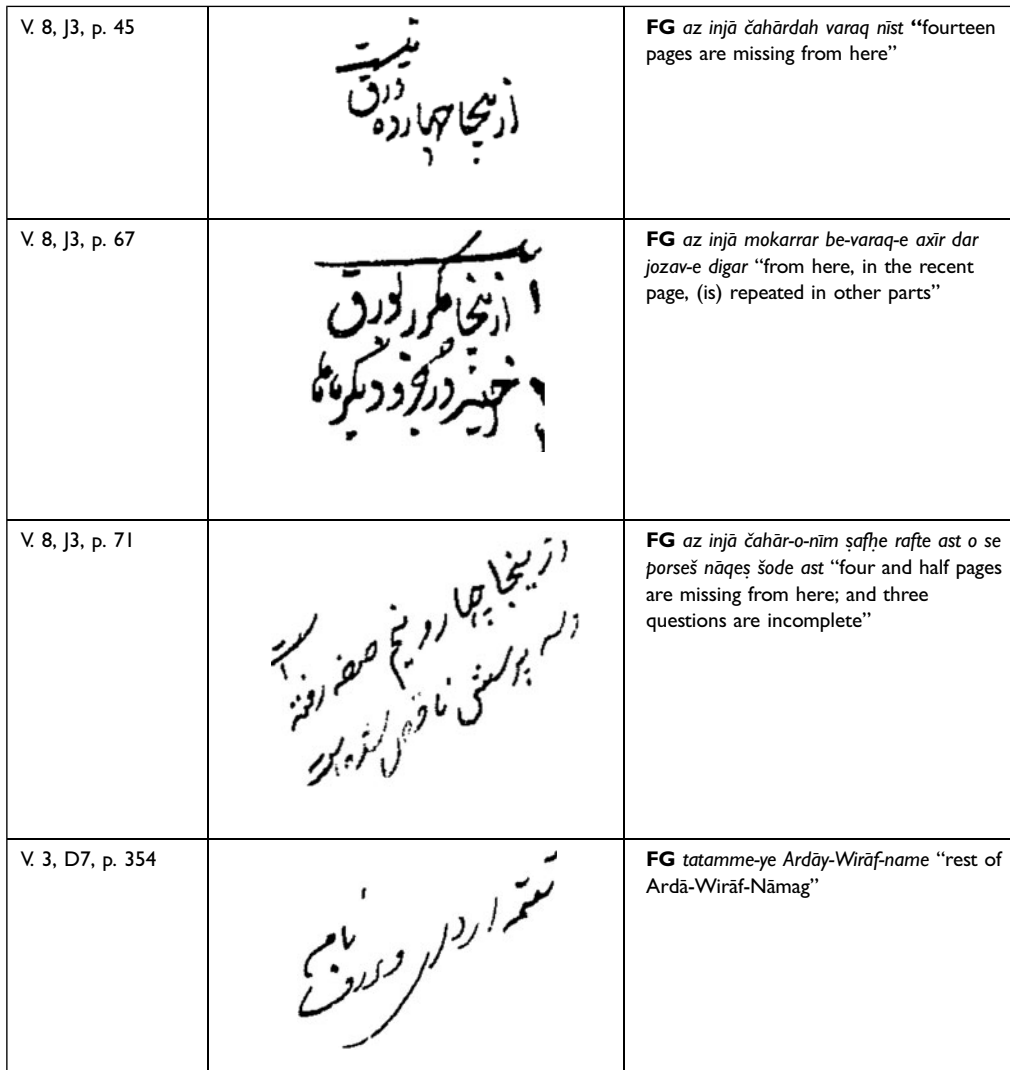 V. 8, J3, p. 45
ازینجا چهارده
ورق
نیست
FG az injā čahārdah varaq nīst “fourteen
pages are missing from here”
V. 8, J3, p. 67
ازینجا مکرر بورق
اخیر در جزو دیگر
FG az injā mokarrar be-varaq-e axīr dar
jozav-e digar “from here, in the recent
page, (is) repeated in other parts”
V. 8, J3, p. 71
ازینجا چهار و نیم صفحه رفته است
و سه پرسش ناقص شده است
FG az injā čahār-o-nīm ṣafḥe rafte ast o se
porseš nāqeṣ šode ast “four and half pages
are missing from here; and three
questions are incomplete”
V. 3, D7, p. 354
تتمه اردای ویراف
نامه
FG tatamme-ye Ardāy-Wirāf-name “rest of
Ardā-Wirāf-Nāmag”